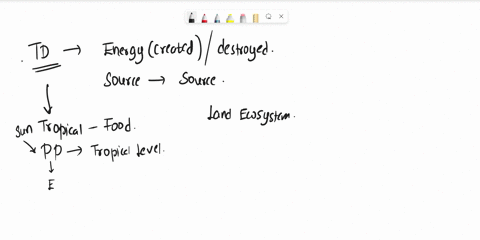 TD → Energy (created) / destroyed.
Source → Source.
Land Ecosystem.
Sun Tropical – Food.
PP → Tropical level.
E